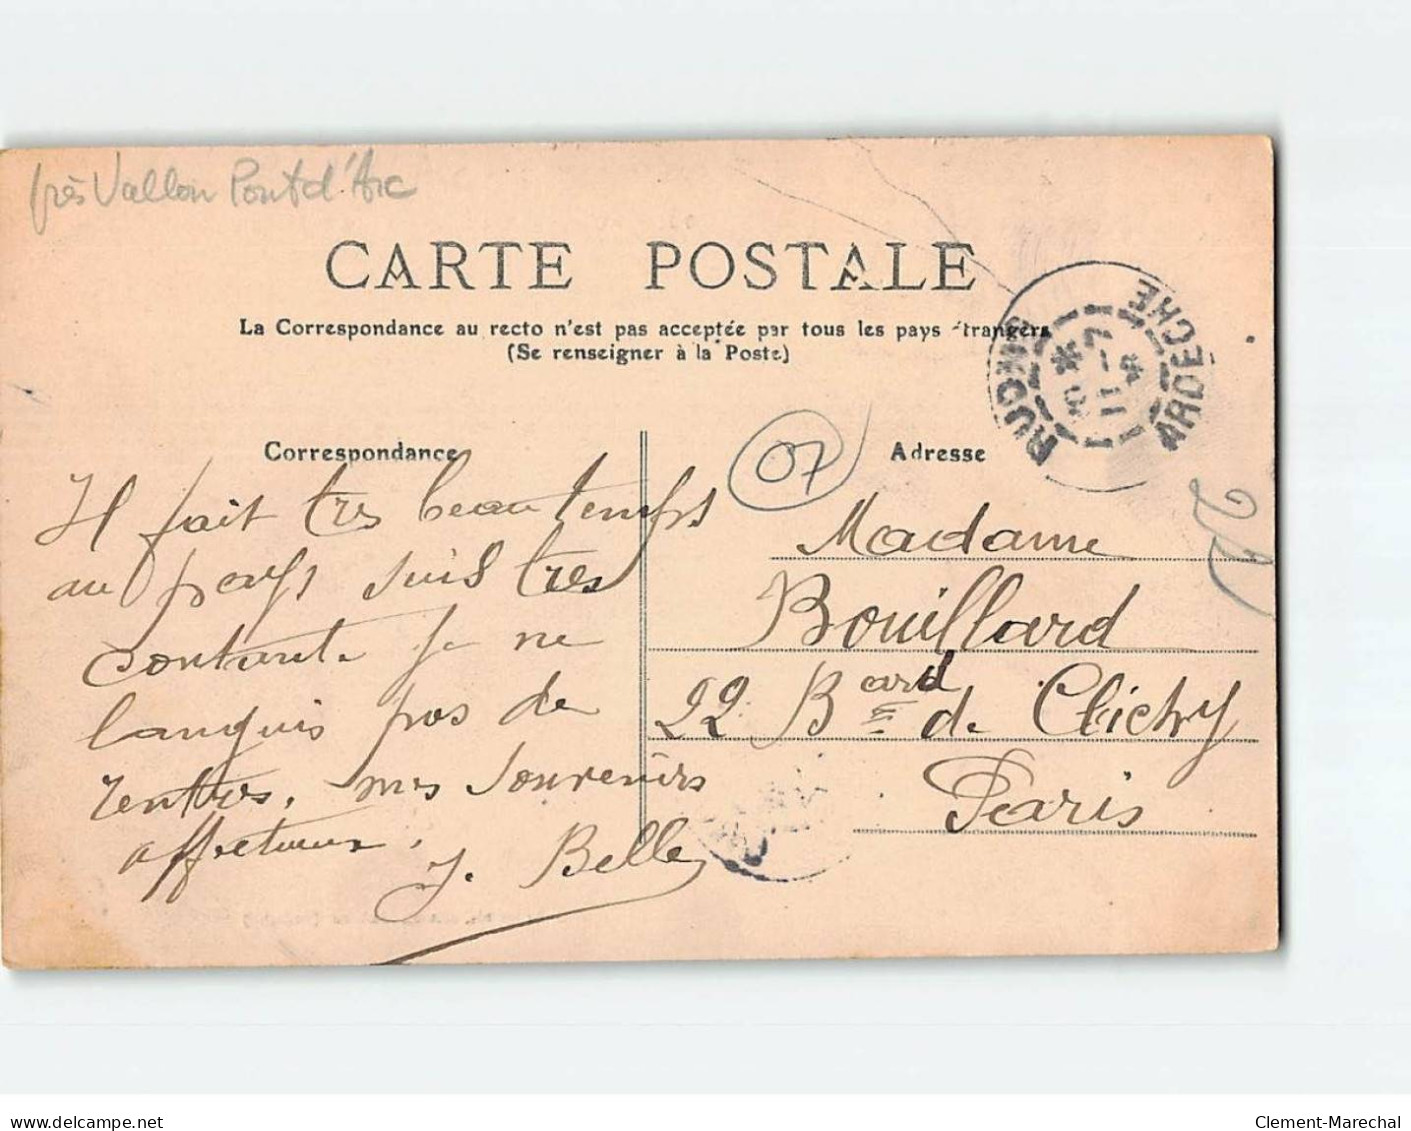 près Vallon Pont d'Arc
CARTE POSTALE
La Correspondance au recto n'est pas acceptée par tous les pays étrangers
(Se renseigner à la Poste)
RUOMS
ARDÈCHE
Correspondance
07
Adresse
Il fait tres beau temps
au pays suis tres
contente je ne
languis pas de
rentrer. mes souvenirs
affectueux.
J. Belle
Madame
Bouillard
22 Bard de Clichy
Paris
www.delcampe.net
Clement-Marechal